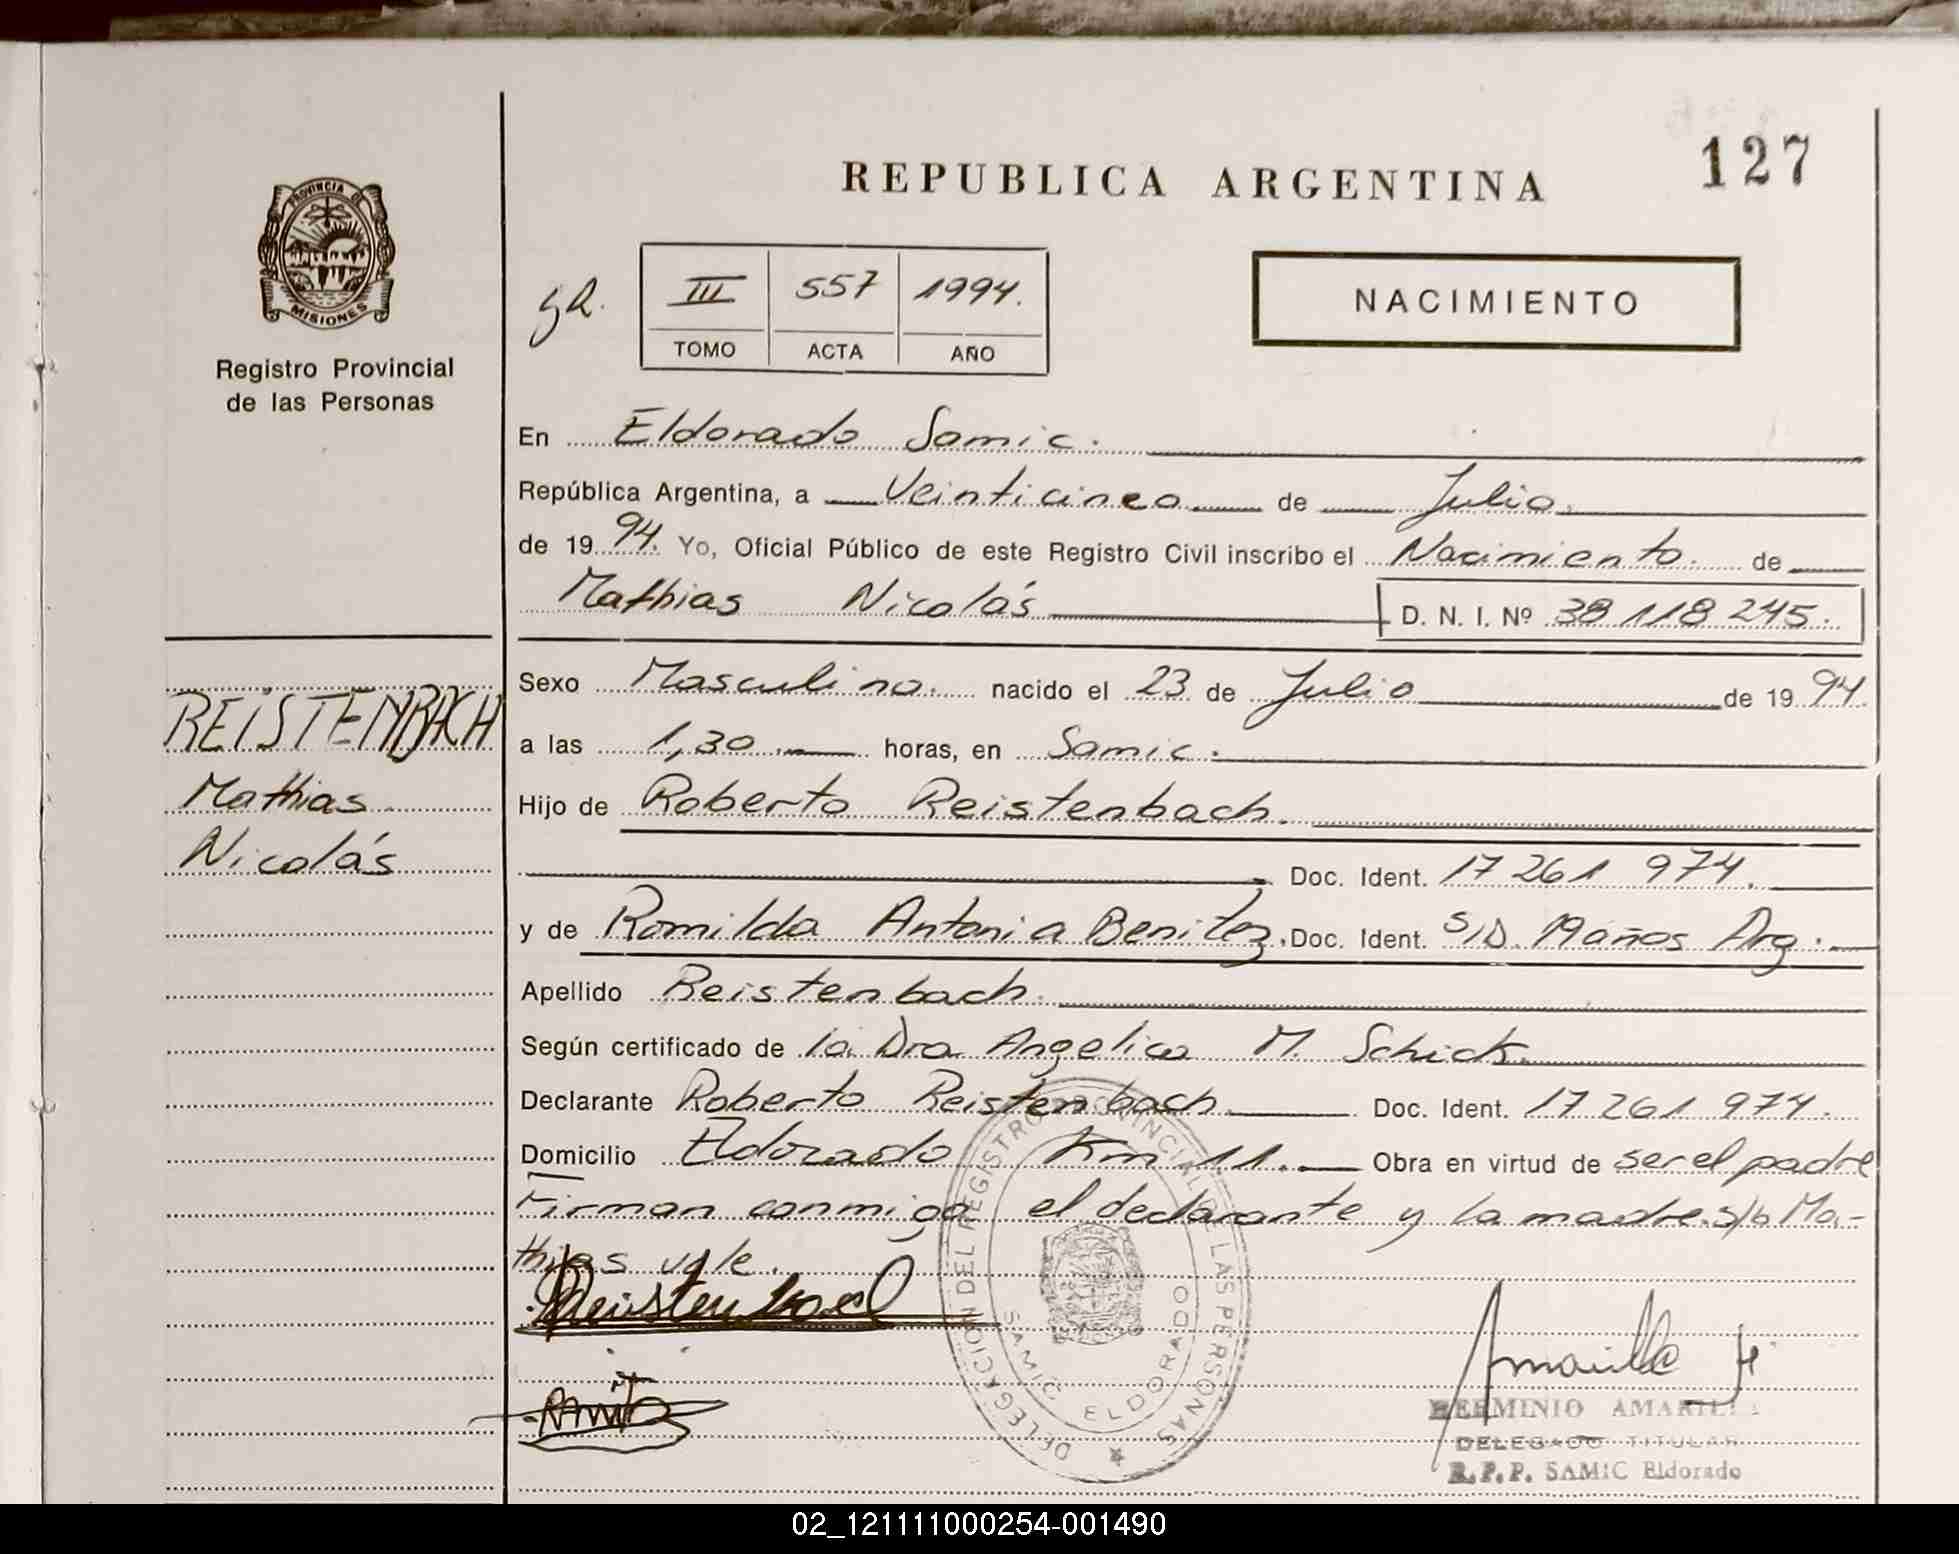 127
REPUBLICA ARGENTINA
PROVINCIA DE
MISIONES
Registro Provincial
de las Personas
III 557 1994.
TOMO ACTA AÑO
NACIMIENTO
En Eldorado Samic.
República Argentina, a Veinticinco de Julio.
de 1994. Yo, Oficial Público de este Registro Civil inscribo el Nacimiento. de
Mathias Nicolás D. N. I. Nº 38 118 245.
REISTENBACH
Mathias
Nicolás
Sexo Masculino. nacido el 23 de Julio de 1994.
a las 1,30 horas, en Samic.
Hijo de Roberto Reistenbach.
Doc. Ident. 17 261 974.
y de Romilda Antonia Benitez, Doc. Ident. S/D. 19 años Arg.
Apellido Reistenbach.
Según certificado de la Dra Angelica M. Schick.
Declarante Roberto Reistenbach. Doc. Ident. 17 261 974.
Domicilio Eldorado Km 11. Obra en virtud de ser el padre
Firman conmigo el declarante y la madre. S/b Ma-
thias vale.
DELEGACION DEL REGISTRO PROVINCIAL DE LAS PERSONAS
SAMIC ELDORADO
Amarilla H
HERMINIO AMARILLA
DELEGADO TITULAR
R.P.P. SAMIC Eldorado
02_121111000254-001490